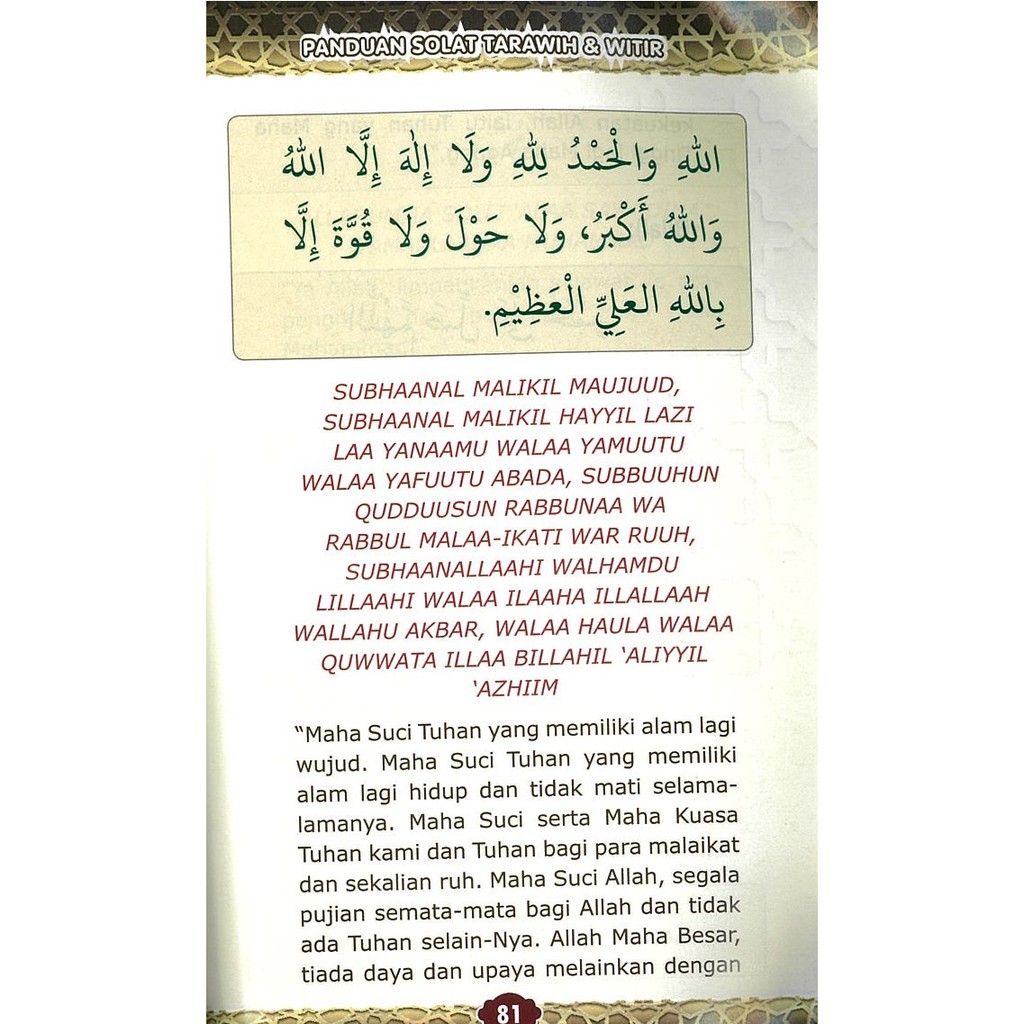 PANDUAN SOLAT TARAWIH & WITIR
اللهِ وَالْحَمْدُ لِلّٰهِ وَلَا إِلٰهَ إِلَّا اللهُ
وَاللهُ أَكْبَرُ، وَلَا حَوْلَ وَلَا قُوَّةَ إِلَّا
بِاللهِ العَلِيِّ الْعَظِيْمِ.
SUBHAANAL MALIKIL MAUJUUD,
SUBHAANAL MALIKIL HAYYIL LAZI
LAA YANAAMU WALAA YAMUUTU
WALAA YAFUUTU ABADA, SUBBUUHUN
QUDDUUSUN RABBUNAA WA
RABBUL MALAA-IKATI WAR RUUH,
SUBHAANALLAAHI WALHAMDU
LILLAAHI WALAA ILAAHA ILLALLAAH
WALLAHU AKBAR, WALAA HAULA WALAA
QUWWATA ILLAA BILLAHIL ‘ALIYYIL
‘AZHIIM
“Maha Suci Tuhan yang memiliki alam lagi
wujud. Maha Suci Tuhan yang memiliki
alam lagi hidup dan tidak mati selama-
lamanya. Maha Suci serta Maha Kuasa
Tuhan kami dan Tuhan bagi para malaikat
dan sekalian ruh. Maha Suci Allah, segala
pujian semata-mata bagi Allah dan tidak
ada Tuhan selain-Nya. Allah Maha Besar,
tiada daya dan upaya melainkan dengan
81